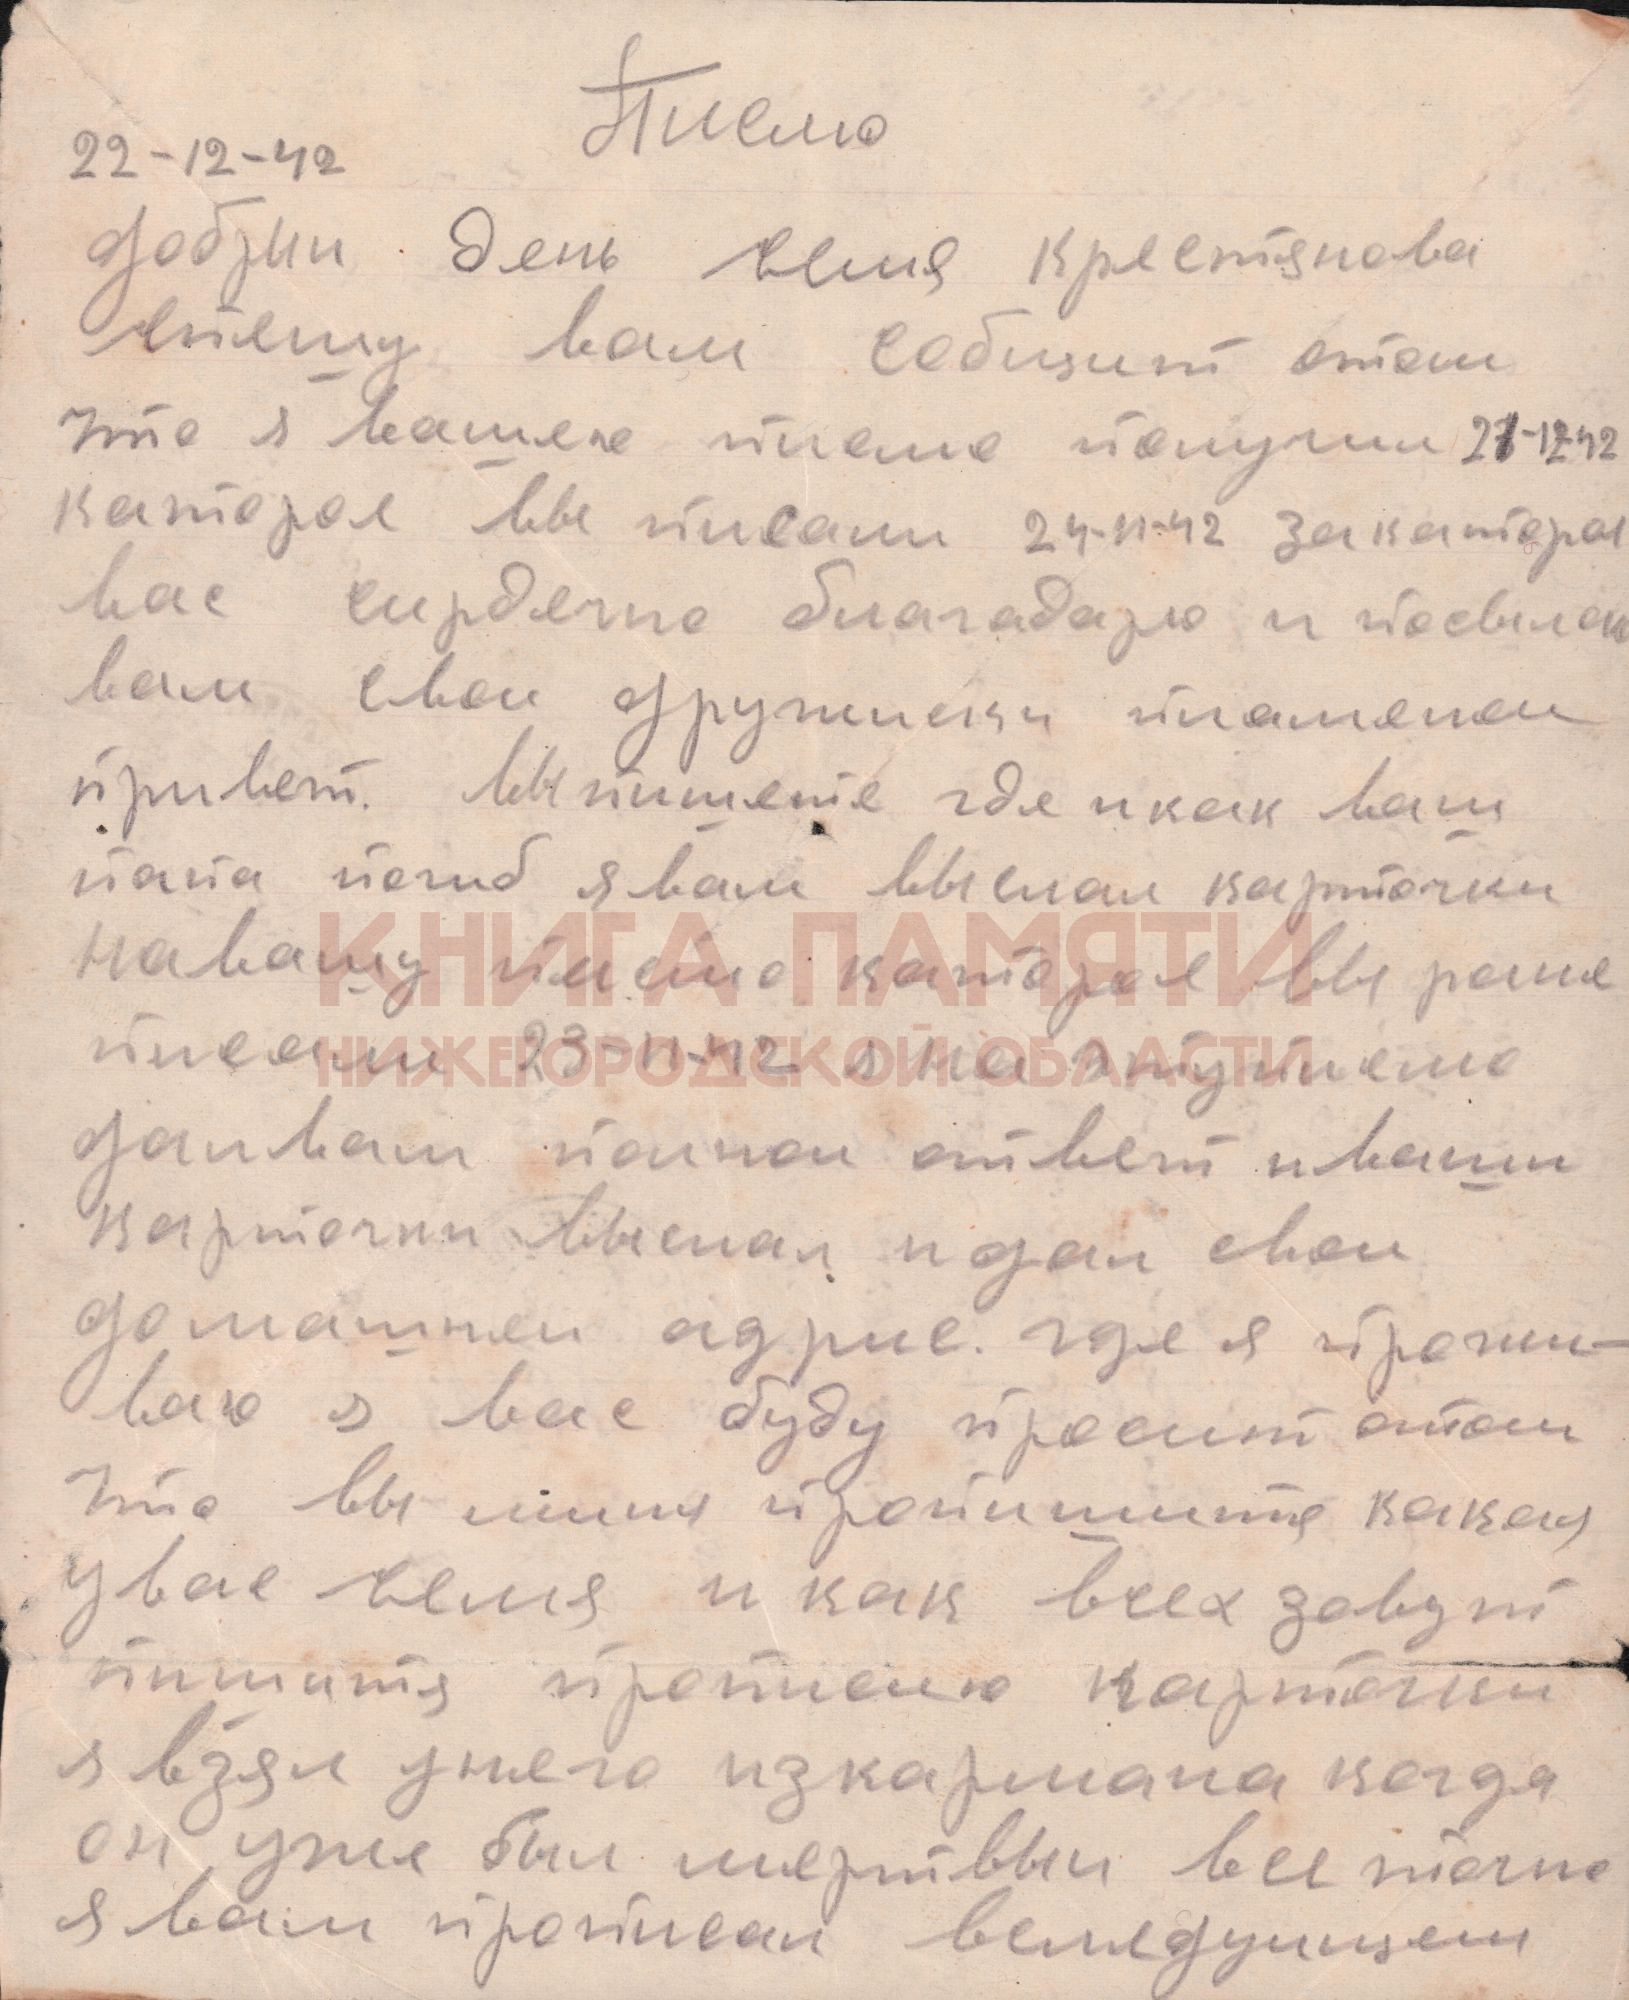 Писмо
22-12-42
добрый день семя крестянова
спешу вам собщит отом
что я вашею писмо получил 21-12-42
каторое вы писали 24-11-42 закаторое
вас сирдечно благадарю и посылаю
вам свои дружиски пламеной
привет. вы пишете где и как ваш
папа погиб я вам выслал карточки
на вашу писмо каторое вы ране
писали 23-11-42 я на эту писмо
дал вам полной ответ и ваши
карточки выслал и дал свой
домашней адрис. где я прожи-
ваю я вас буду просит отом
что вы миня пропишитя какая
у вас семя и как всех завут
пишитя прописаю карточки
я взял у него из кармана когда
он уже был мертвый все точно
я вам прописал вследующем
КНИГА ПАМЯТИ
НИЖЕГОРОДСКОЙ ОБЛАСТИ